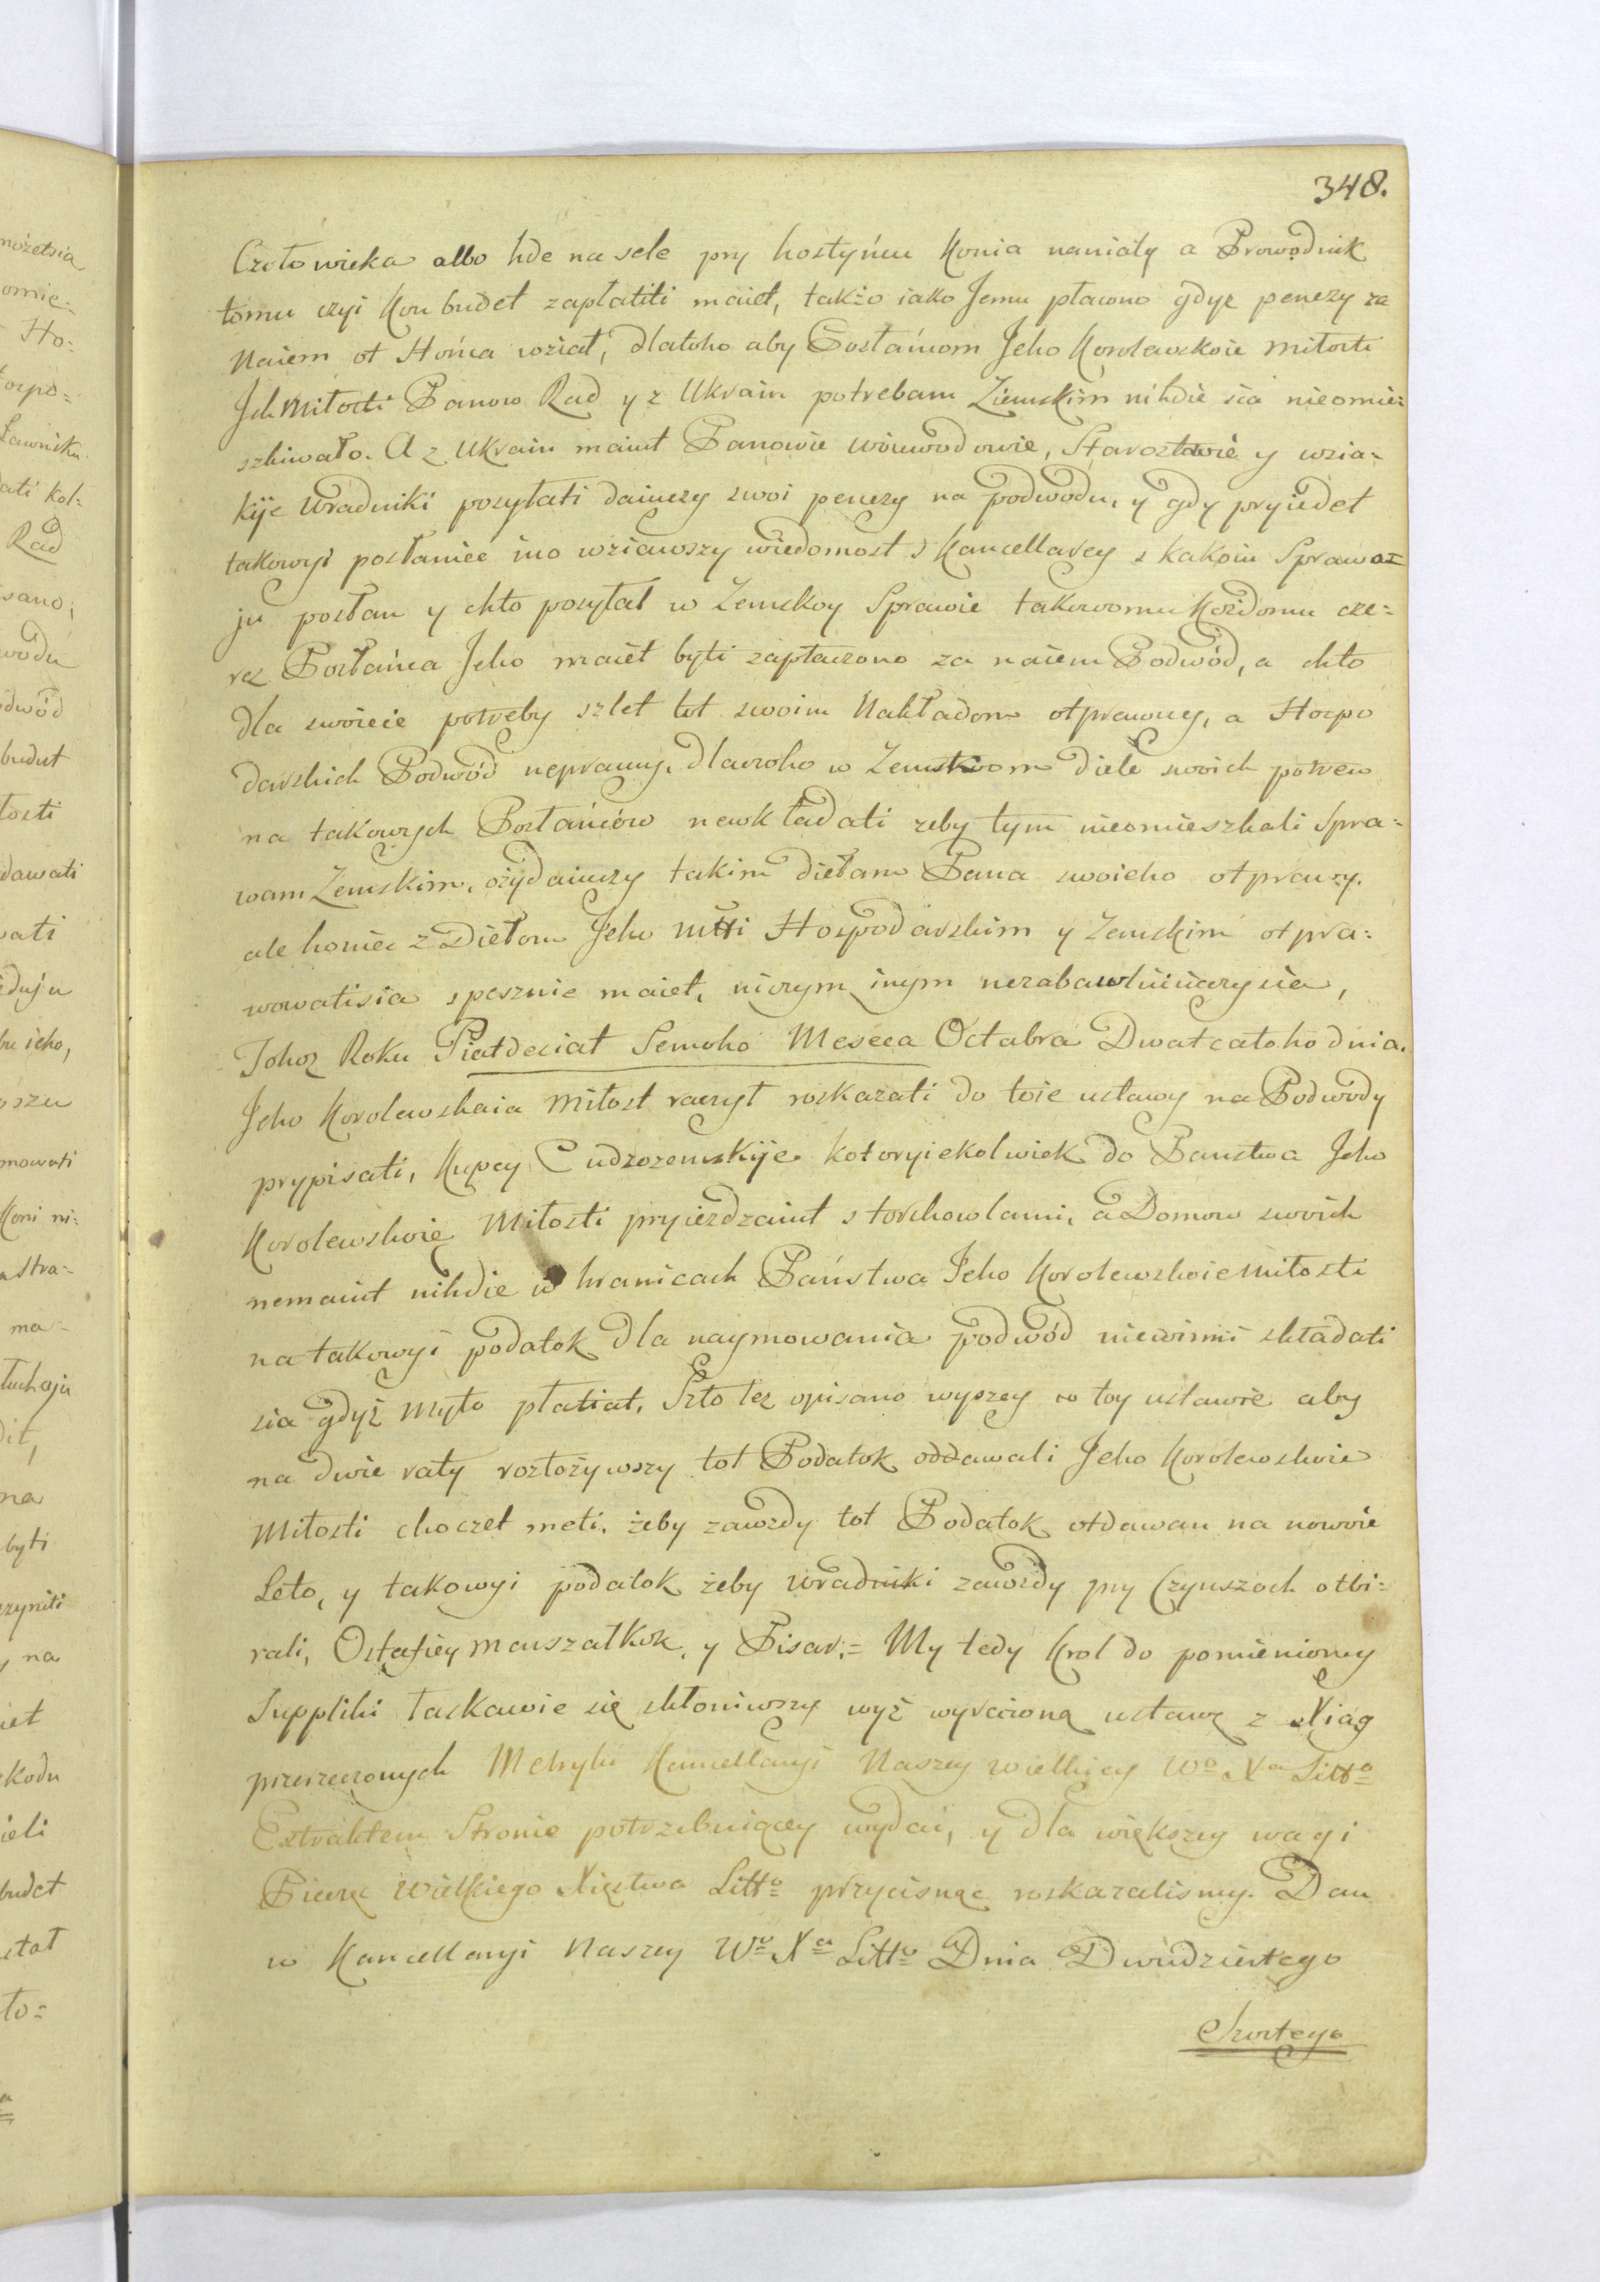 348.
Człowieka albo hde na sele pry hostyńcu Konia naniały a Prowodnik
tomu czyi Kon budet zapłatiti maiet, takżo iako Jemu płacono gdyż penezy za
Naiem ot Hońca wziat, dlatoho aby Posłańcom Jeho Korolewskoie miłosti
Jch Miłosti Panow Rad y z Ukrain potrebam Ziemskim nihdie sia nieomie:
szkiwało. A z Ukrain maiut Panowie woiewodowie, Starostowie y wzia-
kije Wradniki posyłati daiuczy swoi penezy na podwodu, y gdy pryiedet
takowyi posłaniec ino wziawszy wiedomost s Kancellarey s kakoiu Sprawo=
ju posłan y chto posyłal w Zemskoy Sprawie takowomu Kożdomu cze-
rez Posłańca Jeho maiet byti zapłaczono za naiem Podwód, a chto
dla swoieie potreby szlet tot swoim Nakładom otprawuy, a Hospo
darskich Podwód neprawuy. Dlaczoho w Zemskom diele swoich potreb
na takowych Posłańców newkładati zeby tym nieomieszkali Spra-
wam Zemskim, ożydaiuczy takim diełam Pana swoieho otprawy.
ale honiec z Diełom Jeho Mtti Hospodarskim y Zemskim otpra:
wowatisia spesznie maiet, niczym inym nezabawluiuczysia,
Tohoż Roku Piatdesiat Semoho Meseca Octabra Dwatcatoho dnia.
Jeho Korolewskaia Miłost raczył roskazati do toie ustawy na Podwody
prypisati, Kupcy Cudzozemskije kotoryiekolwiek do Panstwa Jeho
Korolewskoie Miłosti pryiezdzaiut s torhowlami, a Domow swoich
nemaiut nihdie w hranicach Państwa Jeho Korolewskoie Miłosti
na takowyi podatok dla naymowania podwód niewinni składati
sia gdyż Myto płatiat, Szto też opisano wyszey w toy ustawie aby
na dwie raty rozłożywszy tot Podatok oddawali Jeho Korolewskoie
Miłosti choczet meti, żeby zawzdy tot Podatok otdawan na nowoie
Leto, y takowyi podatok żeby Wradniki zawzdy pry Czynszoch otbi-
rali, Ostafiey Marszałkok, y Pisar: = My tedy Krol do pomienioney
Suppliki łaskawie się skłoniwszy wyż wyrażoną ustawę z Xiąg
przerzeczonych Metryki Kancellaryi Naszey wielkiey Wo Xa Litto
Extraktem Stronie potrzebuiącey wydać, y dla większey wagi
Pieczęć Wielkiego Xięstwa Litto przycisnąć roskazalismy. Dan
w Kancellaryi Naszey Wo Xa Litto Dnia Dwudziestego
Szostego